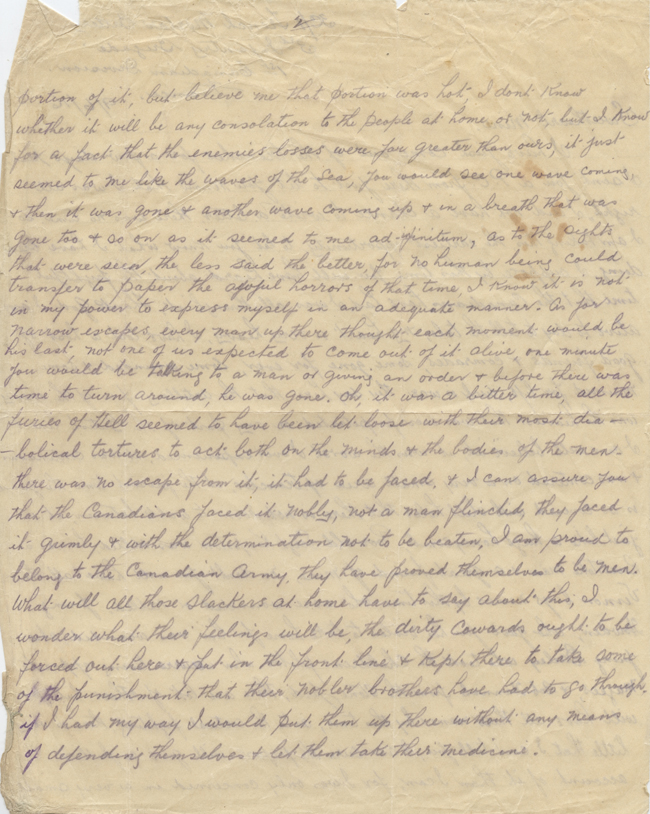 2
portion of it, but believe me that portion was hot, I dont know
whether it will be any consolation to the people at home or not, but I know
for a fact that the enemies losses were far greater than ours, it just
seemed to me like the waves of the sea, you would see one wave coming,
& then it was gone & another wave coming up & in a breath that was
gone too & so on as it seemed to me ad-finitum, as to the sights
that were seen, the less said the better, for no human being could
transfer to paper the awful horrors of that time I know it is not
in my power to express myself in an adequate manner. As for
narrow escapes, every man up there thought each moment would be
his last, not one of us expected to come out of it alive, one minute
you would be talking to a man or giving an order & before there was
time to turn around, he was gone. Oh, it was a bitter time, all the
furies of Hell seemed to have been let loose with their most dia-
-bolical tortures to act both on the minds & the bodies of the men.
there was no escape from it, it had to be faced, & I can assure you
that the Canadians faced it nobly, not a man flinched, they faced
it grimly & with the determination not to be beaten, I am proud to
belong to the Canadian Army, they have proved themselves to be men.
What will all those slackers at home have to say about this, I
wonder what their feelings will be, the dirty cowards ought to be
forced out here & put in the front line & kept there to take some
of the punishment that their nobler brothers have had to go through,
if I had my way I would put them up there without any means
of defending themselves & let them take their medicine.